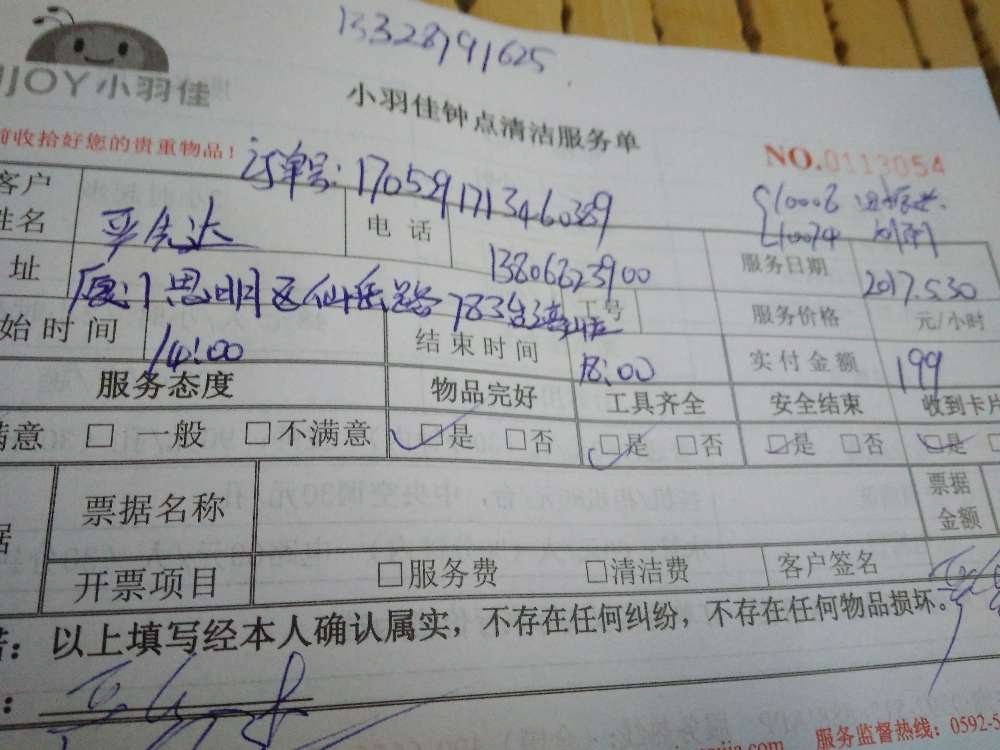 13328791625
JOY小羽佳
小羽佳钟点清洁服务单
前收拾好您的贵重物品！
NO.0113054
订单号：17059171346 0389
客户
姓名
电话
13806023900
服务日期
2017.5.30
址
厦门思明区仙岳路783
工号
服务价格
元/小时
始时间
14:00
结束时间
18:00
实付金额
199
服务态度
物品完好
工具齐全
安全结束
收到卡片
满意 □ 一般 □不满意
□是 □否
□是 □否
□是 □否
□是
票据名称
票据
金额
据
开票项目
□服务费
□清洁费
客户签名
诺：以上填写经本人确认属实，不存在任何纠纷，不存在任何物品损坏。
服务监督热线：0592-5